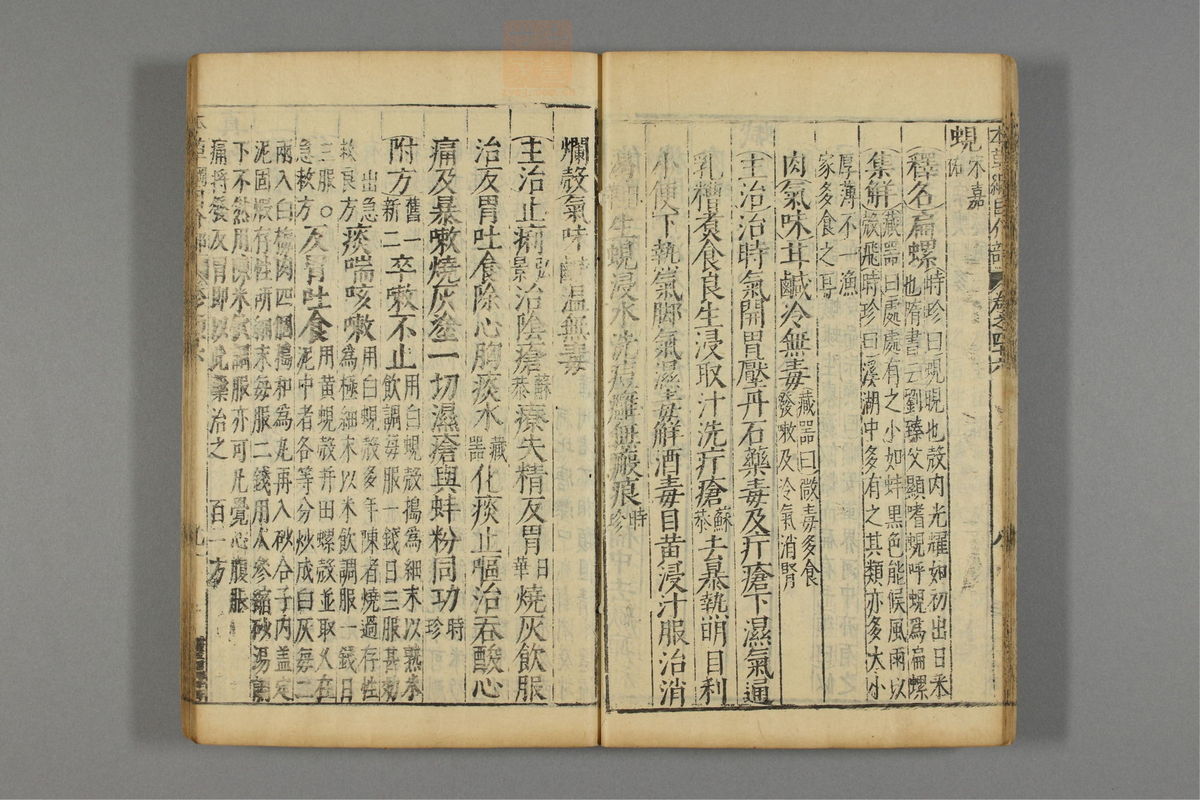 本草綱目介部 卷之四十六 八
蜆 宋嘉祐
釋名 扁螺 時珍曰蜆晛也殼內光耀如初出日采也隋書云劉臻父顯嗜蜆呼蜆為扁螺
集解 藏器曰處處有之小如蚌黑色能候風雨以殼飛時珍曰溪湖中多有之其類亦多大小
厚薄不一漁家多食之耳
肉氣味甘鹹冷無毒 藏器曰微毒多食發嗽及冷氣消腎
主治治時氣開胃壓丹石藥毒及疔瘡下濕氣通
乳糟煮食良生浸取汁洗疔瘡 蘇恭 去暴熱明目利
小便下熱氣脚氣濕毒解酒毒目黃浸汁服治消
生蜆浸水洗痘癰無瘢痕 時珍
爛殼氣味鹹溫無毒
主治止痢 弘景 治陰瘡 蘇恭 療失精反胃 日華 燒灰飲服
治反胃吐食除心胸痰水 藏器 化痰止嘔治吞酸心
痛及暴嗽燒灰塗一切濕瘡與蚌粉同功 時珍
附方 舊一新二 卒嗽不止 用白蜆殼搗為細末以熟米飲調每服一錢日三服甚效
出急救良方 痰喘咳嗽 用白蜆殼多年陳者燒過存性為極細末以米飲調服一錢日
三服○急救方 反胃吐食 用黃蜆殼并田螺殼並取久在泥中者各等分炒成白灰每二
兩入白梅肉四個搗和為丸再入砂合子內蓋定泥固煅存性研細末每服二錢用人參縮砂湯調
下不然用陳米飲調服亦可凡覺心腹脹痛將發反胃即以此藥治之 百一方
九